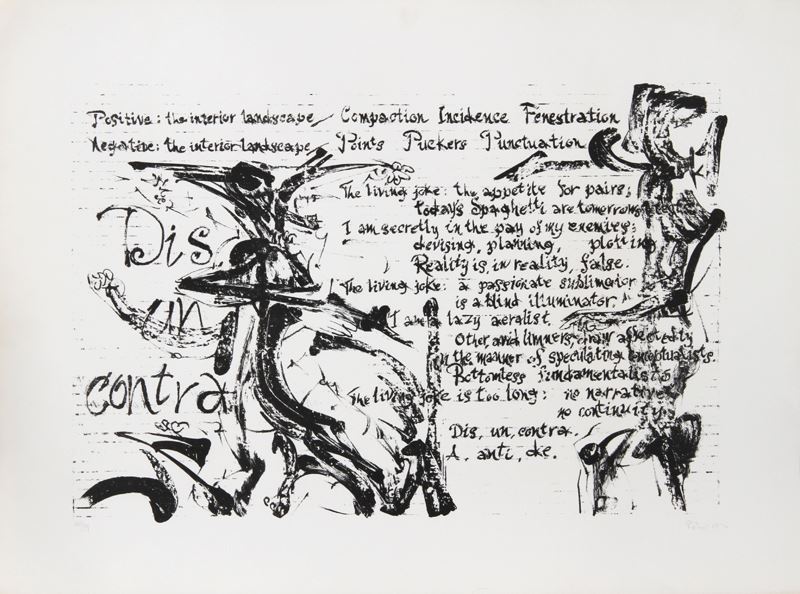 Positive: the interior landscape Compaction Incidence Fenestration
Negative: the interior landscape Points Puckers Punctuation
The living joke: the appetite for pairs;
today's Spaghetti are tomorrows
I am secretly in the pay of my enemies:
devising, planning, plotting
Reality is, in reality, false.
The living joke: a passionate sublimator
is a blind illuminator.
I am a lazy aeralist.
Other, and limners, draw affectedly
in the manner of speculating
Bottomless fundamentalists
The living joke is too long: no narrative
no continuity.
Dis, un, contra.
A, anti, de.
Dis
un
contra